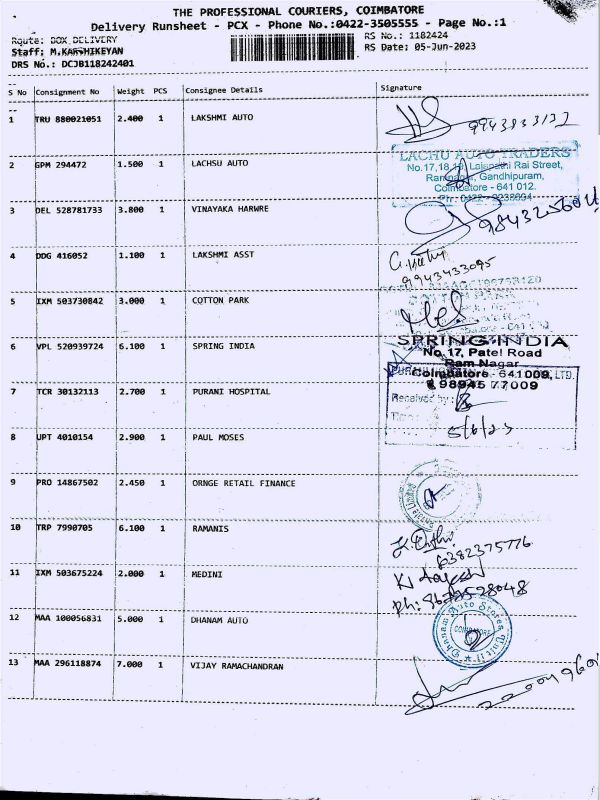 THE PROFESSIONAL COURIERS, COIMBATORE
Delivery Runsheet - PCX - Phone No.:0422-3505555 - Page No.:1
Route: BOX DELIVERY
RS No.: 1182424
Staff: M.KARTHIKEYAN
RS Date: 05-Jun-2023
DRS No.: DCJB118242401
S No Consignment No Weight PCS Consignee Details Signature
1 TRU 880021051 2.400 1 LAKSHMI AUTO
2 GPM 294472 1.500 1 LACHSU AUTO
LACHU AUTO TRADERS
No.17,18,19 Lajapathi Rai Street,
Ramnagar, Gandhipuram,
Coimbatore - 641 012.
3 DEL 528781733 3.800 1 VINAYAKA HARWRE
4 DDG 416052 1.100 1 LAKSHMI ASST
9943433095
5 IXM 503730842 3.000 1 COTTON PARK
6 VPL 520939724 6.100 1 SPRING INDIA
SPRING INDIA
No. 17, Patel Road
Ram Nagar
Coimbatore - 641009,
98945 77009
7 TCR 30132113 2.700 1 PURANI HOSPITAL
LTD.
Received by:
5/6/23
8 UPT 4010154 2.900 1 PAUL MOSES
9 PRO 14867502 2.450 1 ORNGE RETAIL FINANCE
10 TRP 7990705 6.100 1 RAMANIS
6382375776
11 IXM 503675224 2.000 1 MEDINI
Ph:
12 MAA 100056831 5.000 1 DHANAM AUTO
Dhanam Auto Stores
COIMBATORE
13 MAA 296118874 7.000 1 VIJAY RAMACHANDRAN